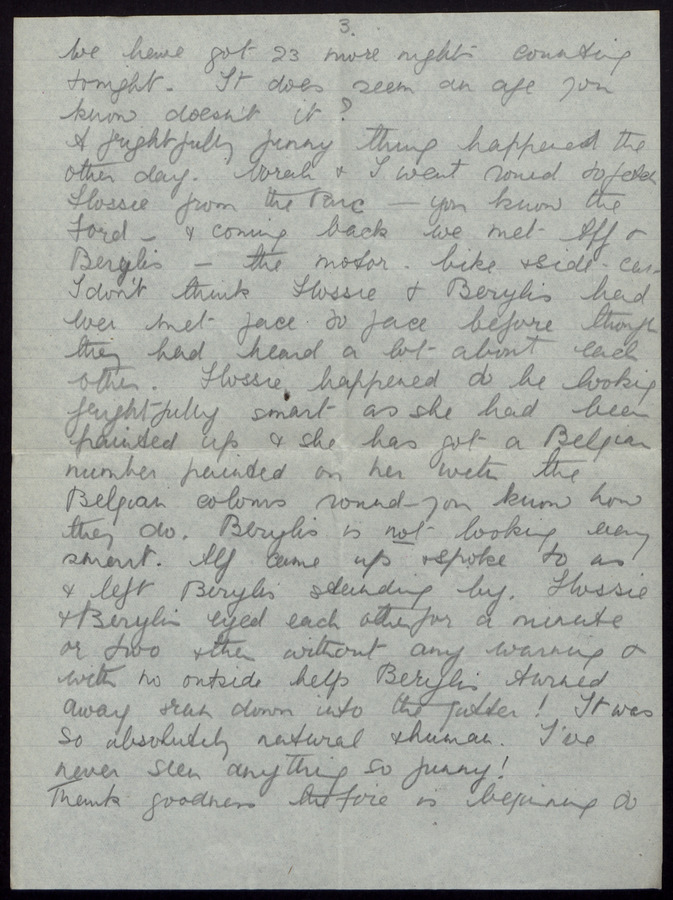 3.
We have got 23 more nights counting
tonight. It does seem an age you
know doesn't it?
A frightfully funny thing happened the
other day. Norah & I went round to fetch
Flossie from the Parc — you know the
Ford — & coming back we met Alf &
Berylis — the motor-bike & side-car.
I don't think Flossie & Berylis had
ever met face to face before though
they had heard a lot about each
other. Flossie happened to be looking
frightfully smart as she had been
painted up & she has got a Belgian
number painted on her with the
Belgian colours round – you know how
they do. Berylis is not looking very
smart. Alf came up & spoke to us
& left Berylis standing by. Flossie
& Berylis eyed each other for a minute
or two & then without any warning &
with no outside help Berylis turned
away & ran down into the gutter! It was
so absolutely natural & human. I've
never seen anything so funny!
Thank goodness the fire is beginning to